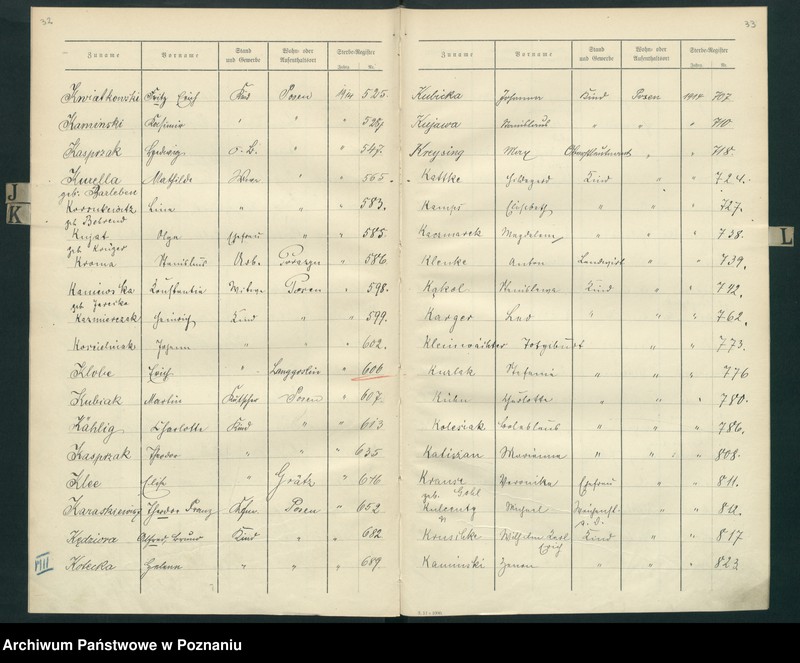 32
Zuname Vorname Stand und Gewerbe Wohn- oder Aufenthaltsort Sterbe-Register
Jahrg. Nr.
Kwiatkowski Fritz Erich Kind Posen 1914 525.
Kaminski Kasimir " " " 529
Kasprzak Hedwig o. B. " " 547.
Kurella Mathilde Wwe " " 565.
geb. Barleben
Koronkewitz Lina " " " 583.
geb Behrend
Kujat Olga Ehefrau " " 585.
geb Krüger
Kroma Stanislaus Arb. " 586.
Kaniewska Konstantia Witwe Posen " 598.
Kazmierczak Heinrich Kind " " 599.
Koscielniak Johann " " " 602.
Klobe Erich " Langgoslin " 606
Kubiak Martin Kutscher Posen " 607.
Kählig Charlotte Kind " " 613
Kasprzak Theodor " " " 635.
Klee " Grätz " 646
Karaskiewicz Theodor Franz Kfm. Posen " 652
Kędziora Alfred Bruno Kind " " 682
VIII Kotecka Helene " " " 689.
33
Zuname Vorname Stand und Gewerbe Wohn- oder Aufenthaltsort Sterbe-Register
Jahrg. Nr.
Kubicka Johanna Kind Posen 1914 707
Kujawa Stanislaus " " " 710
Kreysing Max " " 718.
Kottke Hildegard Kind " " 724.
Kamps Elisabeth " " " 727.
Kaczmarek Magdalena " " " 738.
Klenke Anton Landwirt " " 739.
Kąkol Stanislawa Kind " " 742.
Karger " " " 762.
Kleinwächter Totgeburt " " 773.
Kurlak Stefania " " " 776
Kühn Charlotte " " " 780.
Kolesiak Boleslaus " " " 786.
Katiszan Marianna " " : " 808.
Krause Veronika Ehefrau " " 811.
geb. Gohl
Michael " " 811.
Kruschke Wilhelm Karl Kind " " 817
Erich
Kaminski Zenon " " " 823
J
K
L
Archiwum Państwowe w Poznaniu